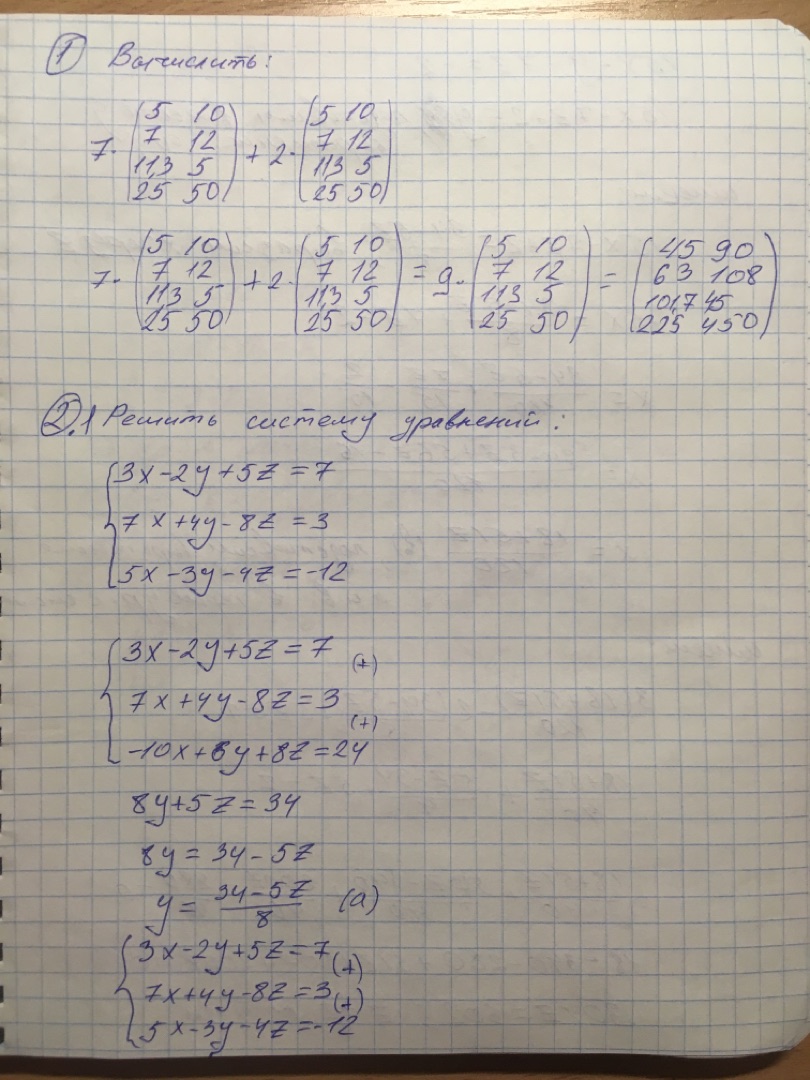 ① Вычислить:
7·(5 10
7 12
11,3 5
25 50) + 2·(5 10
7 12
11,3 5
25 50)
7·(5 10
7 12
11,3 5
25 50) + 2·(5 10
7 12
11,3 5
25 50) = 9·(5 10
7 12
11,3 5
25 50) = (45 90
63 108
101,7 45
225 450)
②.1 Решить систему уравнений:
3x-2y+5z=7
7x+4y-8z=3
5x-3y-4z=-12
3x-2y+5z=7 (+)
7x+4y-8z=3 (+)
-10x+6y+8z=24
8y+5z=34
8y=34-5z
y=(34-5z)/8 (a)
3x-2y+5z=7 (+)
7x+4y-8z=3 (+)
5x-3y-4z=-12